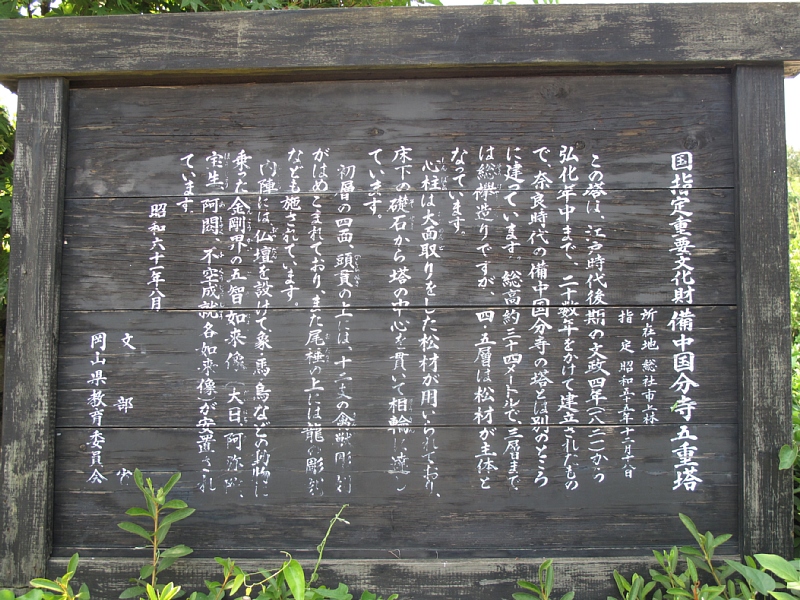 国指定重要文化財 備中国分寺五重塔
所在地 総社市上林
指定 昭和五十五年十二月十八日
この塔は、江戸時代後期の文政四年(一八二一)から
弘化年中まで、二十数年をかけて建立されたもの
で、奈良時代の備中国分寺の塔とは別のところ
に建っています。総高約三十四メートルで、三層まで
は総欅造りですが、四・五層は松材が主体と
なっています。
心柱は大面取りをした松材が用いられており、
床下の礎石から塔の中心を貫いて相輪に達し
ています。
初層の四面、頭貫の上には、十二支の禽獣彫刻
がはめこまれており、また尾棰の上には龍の彫刻
なども施されています。
内陣には仏壇を設けて、象・馬・鳥などの動物に
乗った金剛界の五智如来像(大日、阿弥陀、
宝生、阿閦、不空成就各如来像)が安置され
ています。
昭和六十一年八月
文部省
岡山県教育委員会